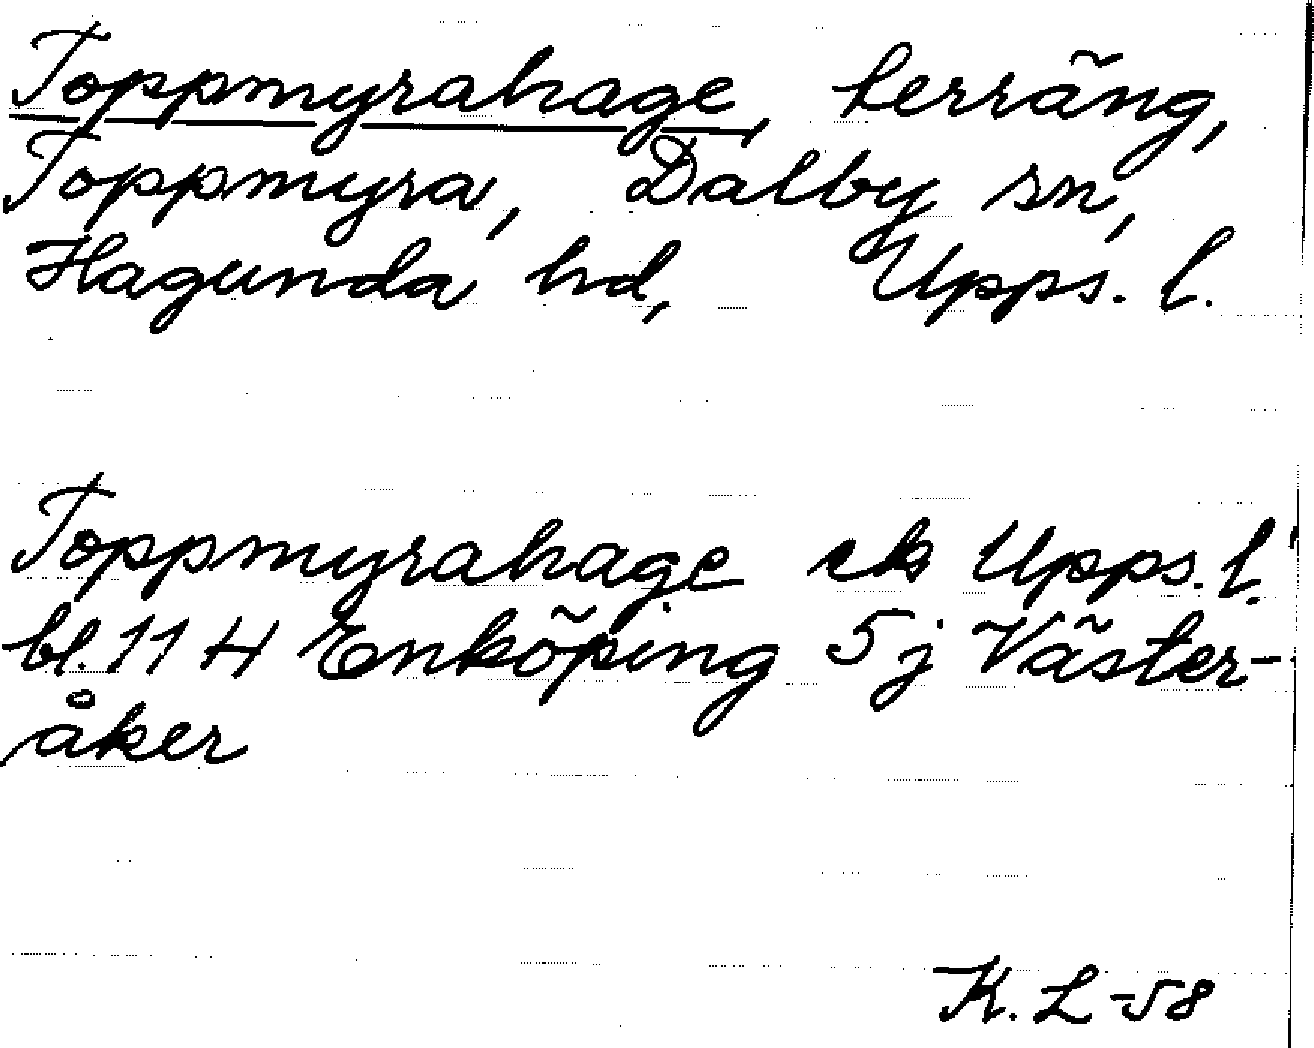 Toppmyrahage, terräng,
Toppmyra, Dalby sn,
Hagunda hd, Upps. l.
Toppmyrahage ek Upps. l.
bl. 11 H Enköping 5 j Väster-
åker
K. L -58